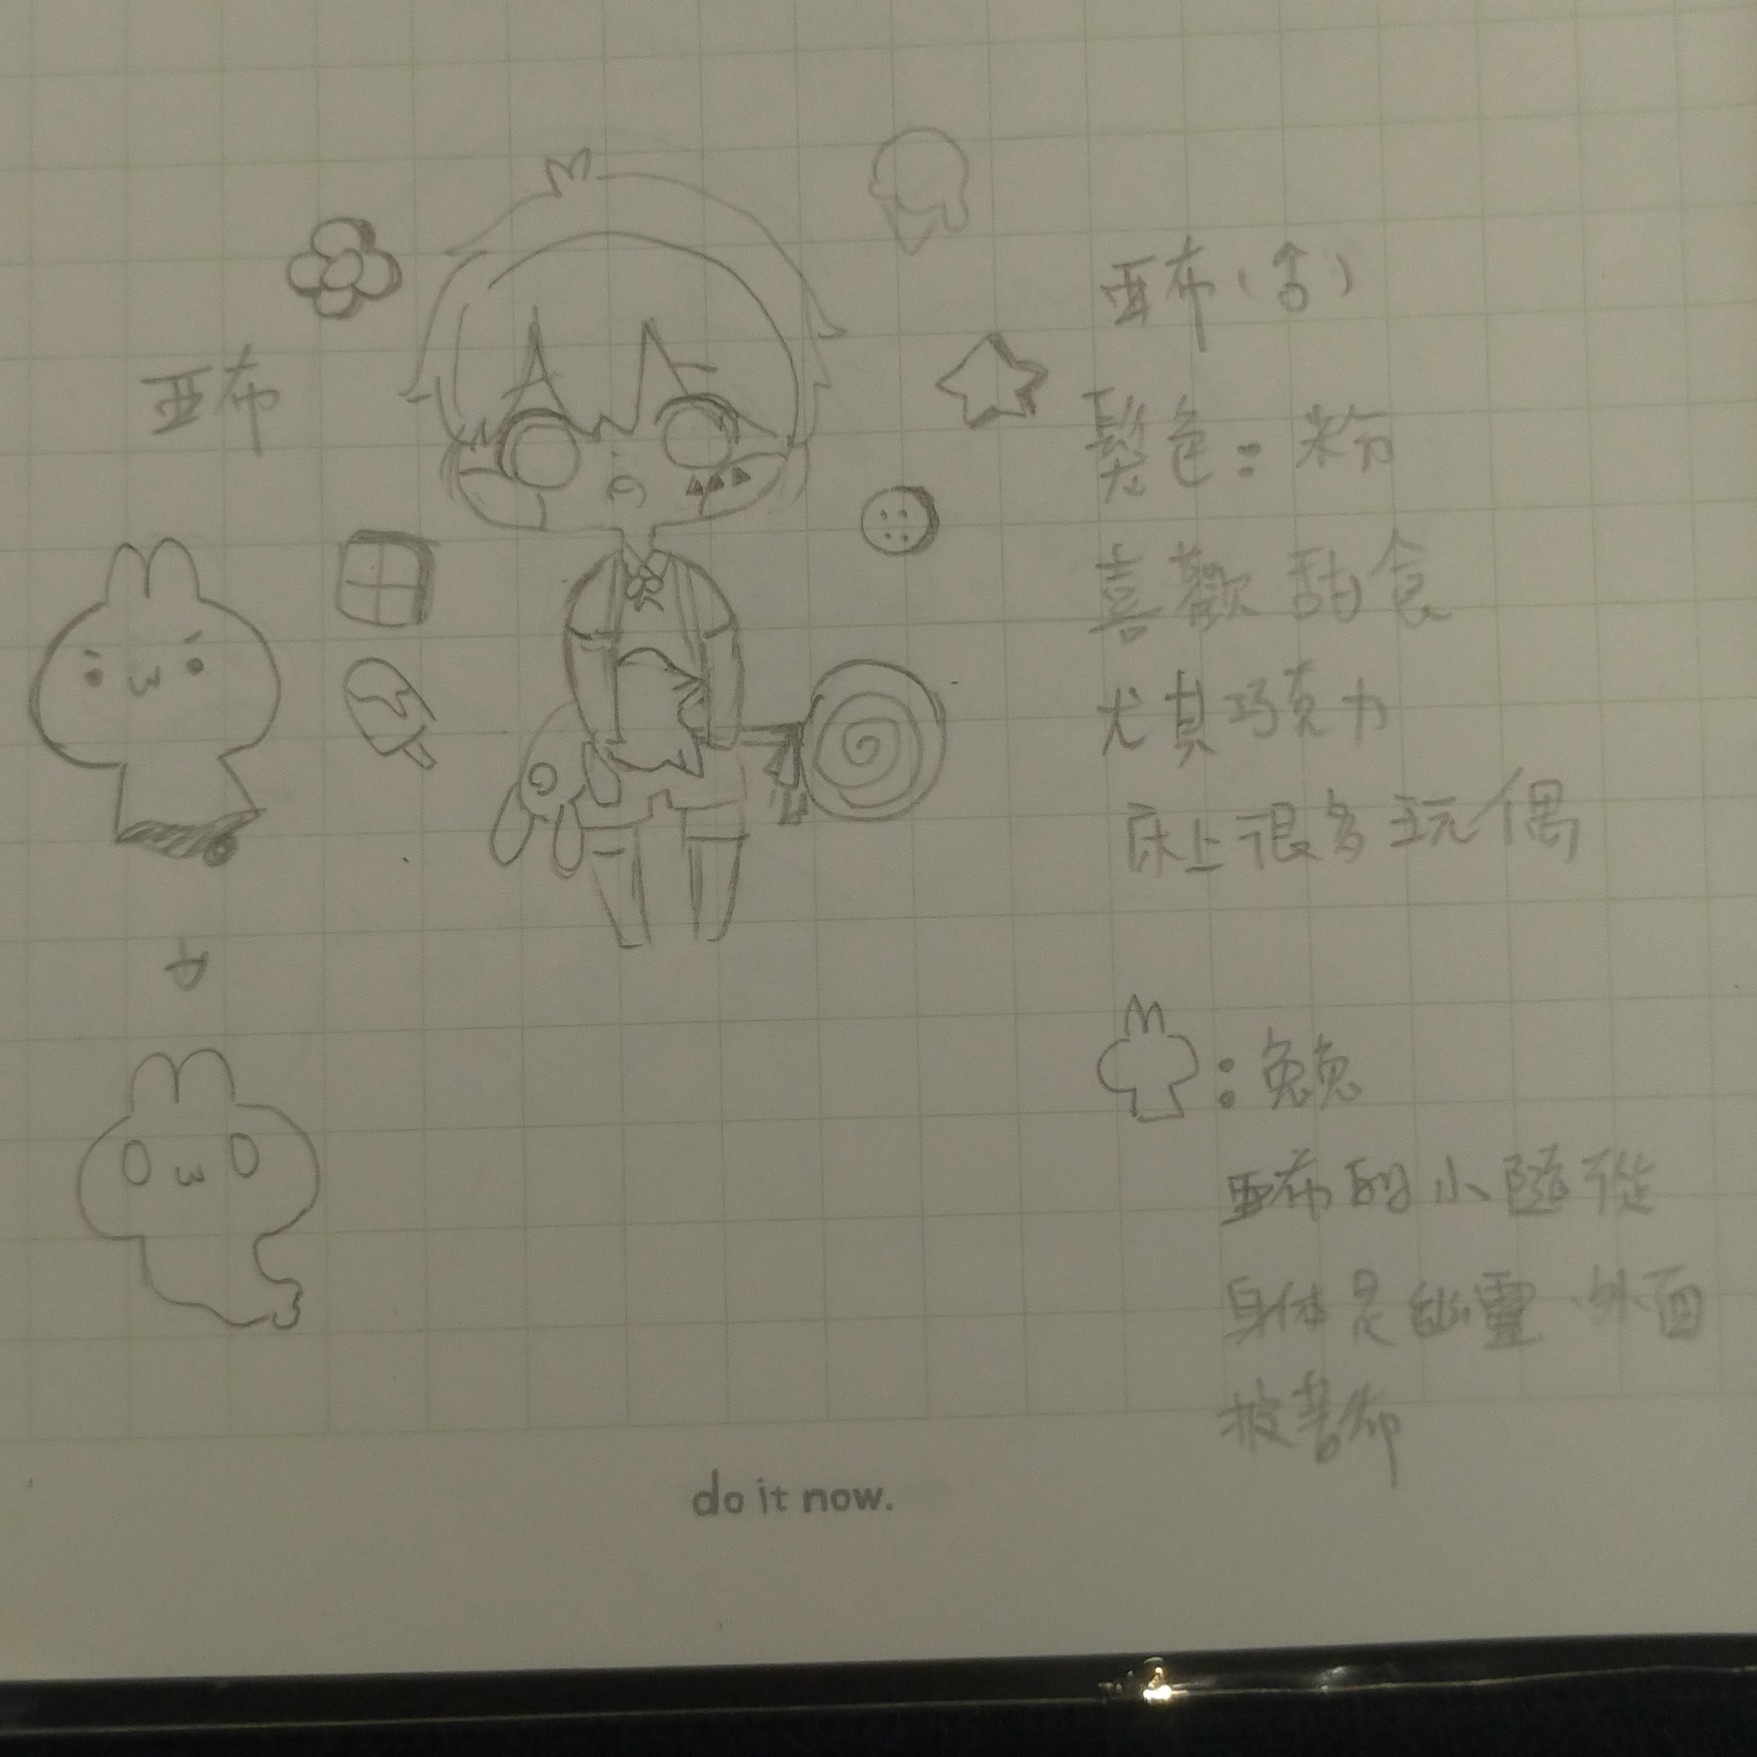 亞布
亞布(♂)
髮色：粉
喜歡甜食
尤其巧克力
床上很多玩偶
：兔兔
亞布的小隨從
身体是幽靈、外面
披著布
do it now.